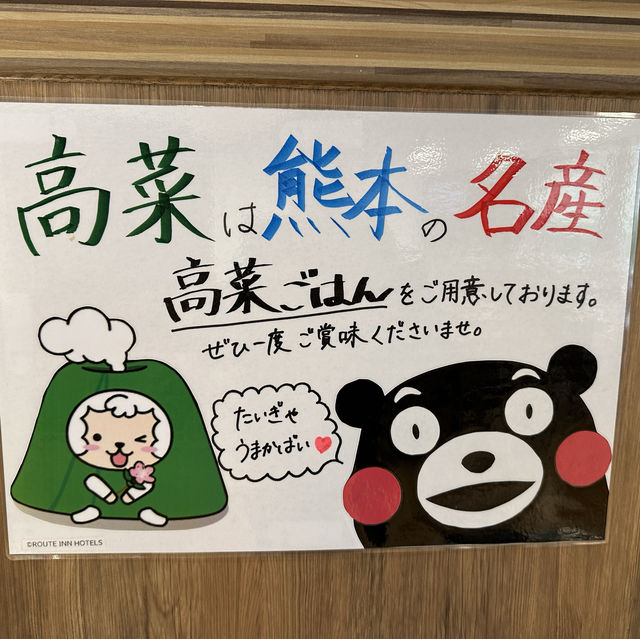 高菜は熊本の名産
高菜ごはんをご用意しております。
ぜひ一度ご賞味くださいませ。
たいぎゃ
うまかばい
©ROUTE INN HOTELS